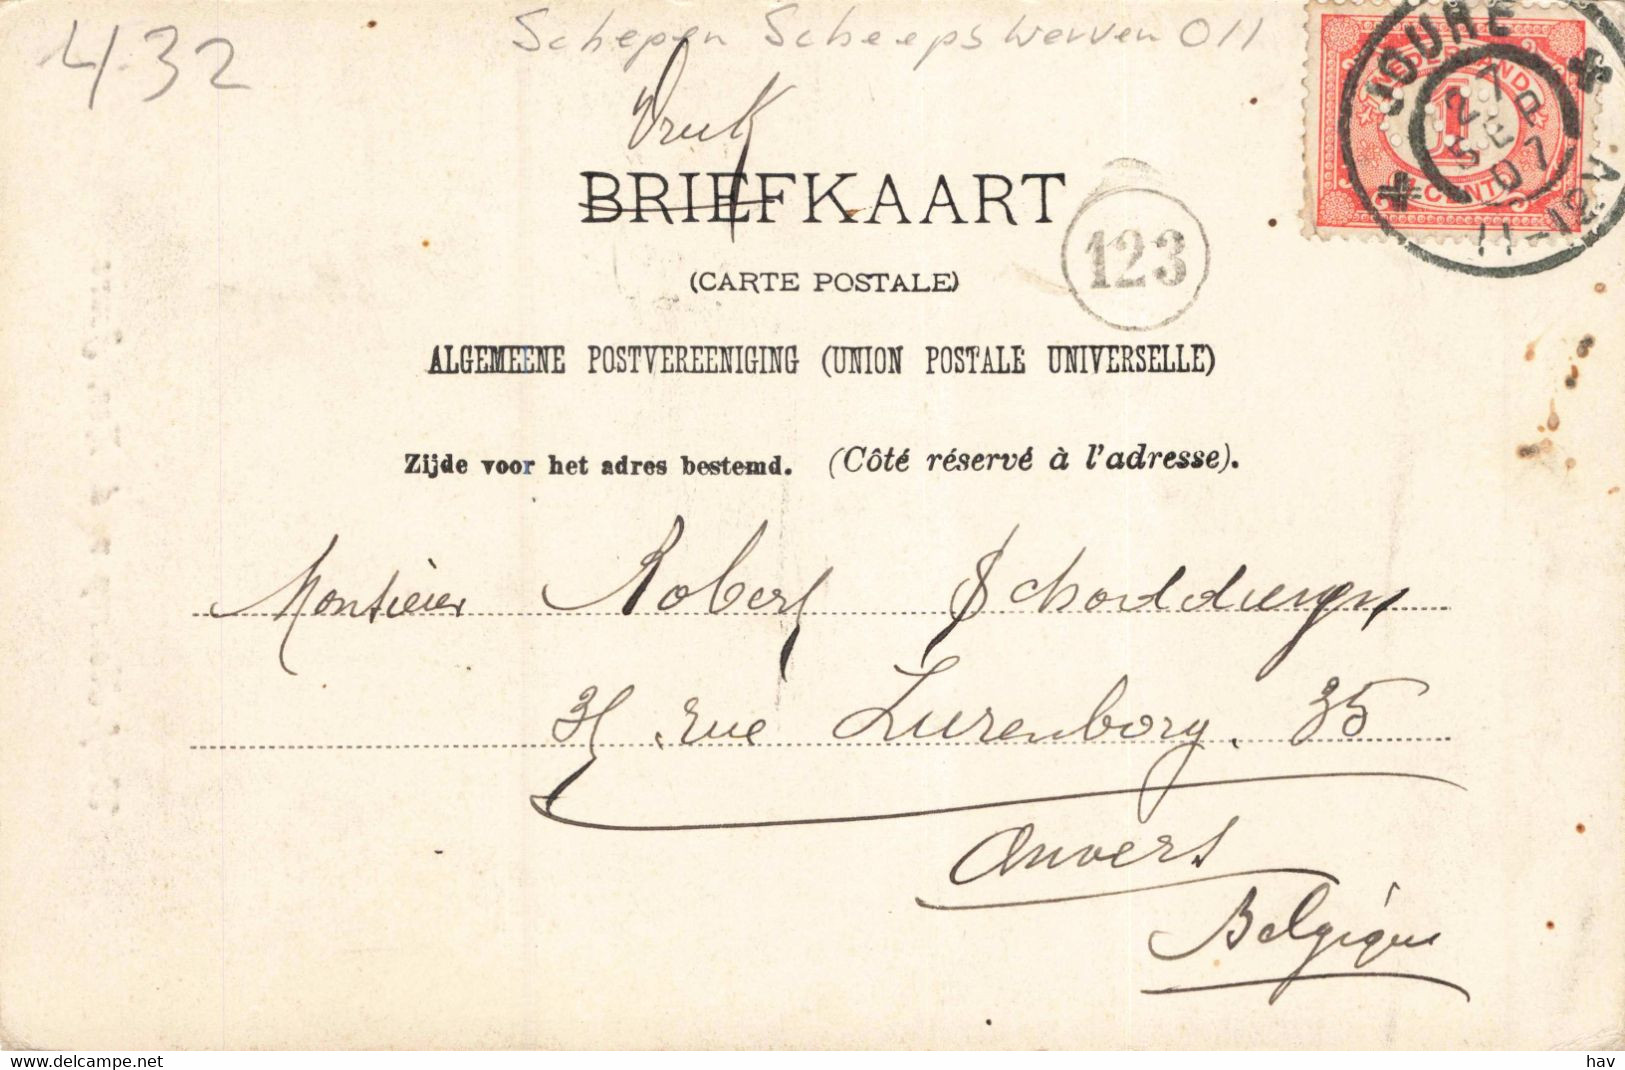 432
Schepen Scheepswerven 011
Druk
BRIEFKAART
(CARTE POSTALE)
123
JOURE
27 SEP 07
11-12V
NEDERLAND
1
CENT
ALGEMEENE POSTVEREENIGING (UNION POSTALE UNIVERSELLE)
Zijde voor het adres bestemd. (Côté réservé à l'adresse).
Monsieur Robert
rue Luxenborg. 35
Anvers
Belgique
Delcampe.net
hav